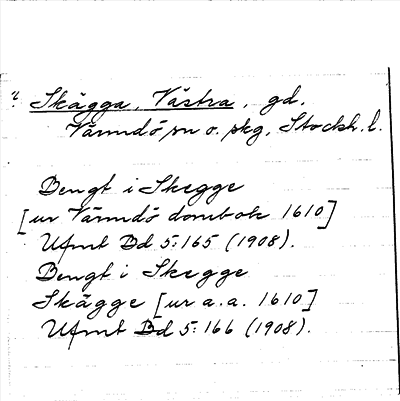 Skägga, Västra, gd.
Värmdö sn o. skg, Stockh. l.
Bengt i Skegge
[ur Värmdö dombok 1610]
Ufmt Bd 5:165 (1908).
Bengt i Skegge
Skägge [ur a.a. 1610]
Ufmt Bd 5:166 (1908).